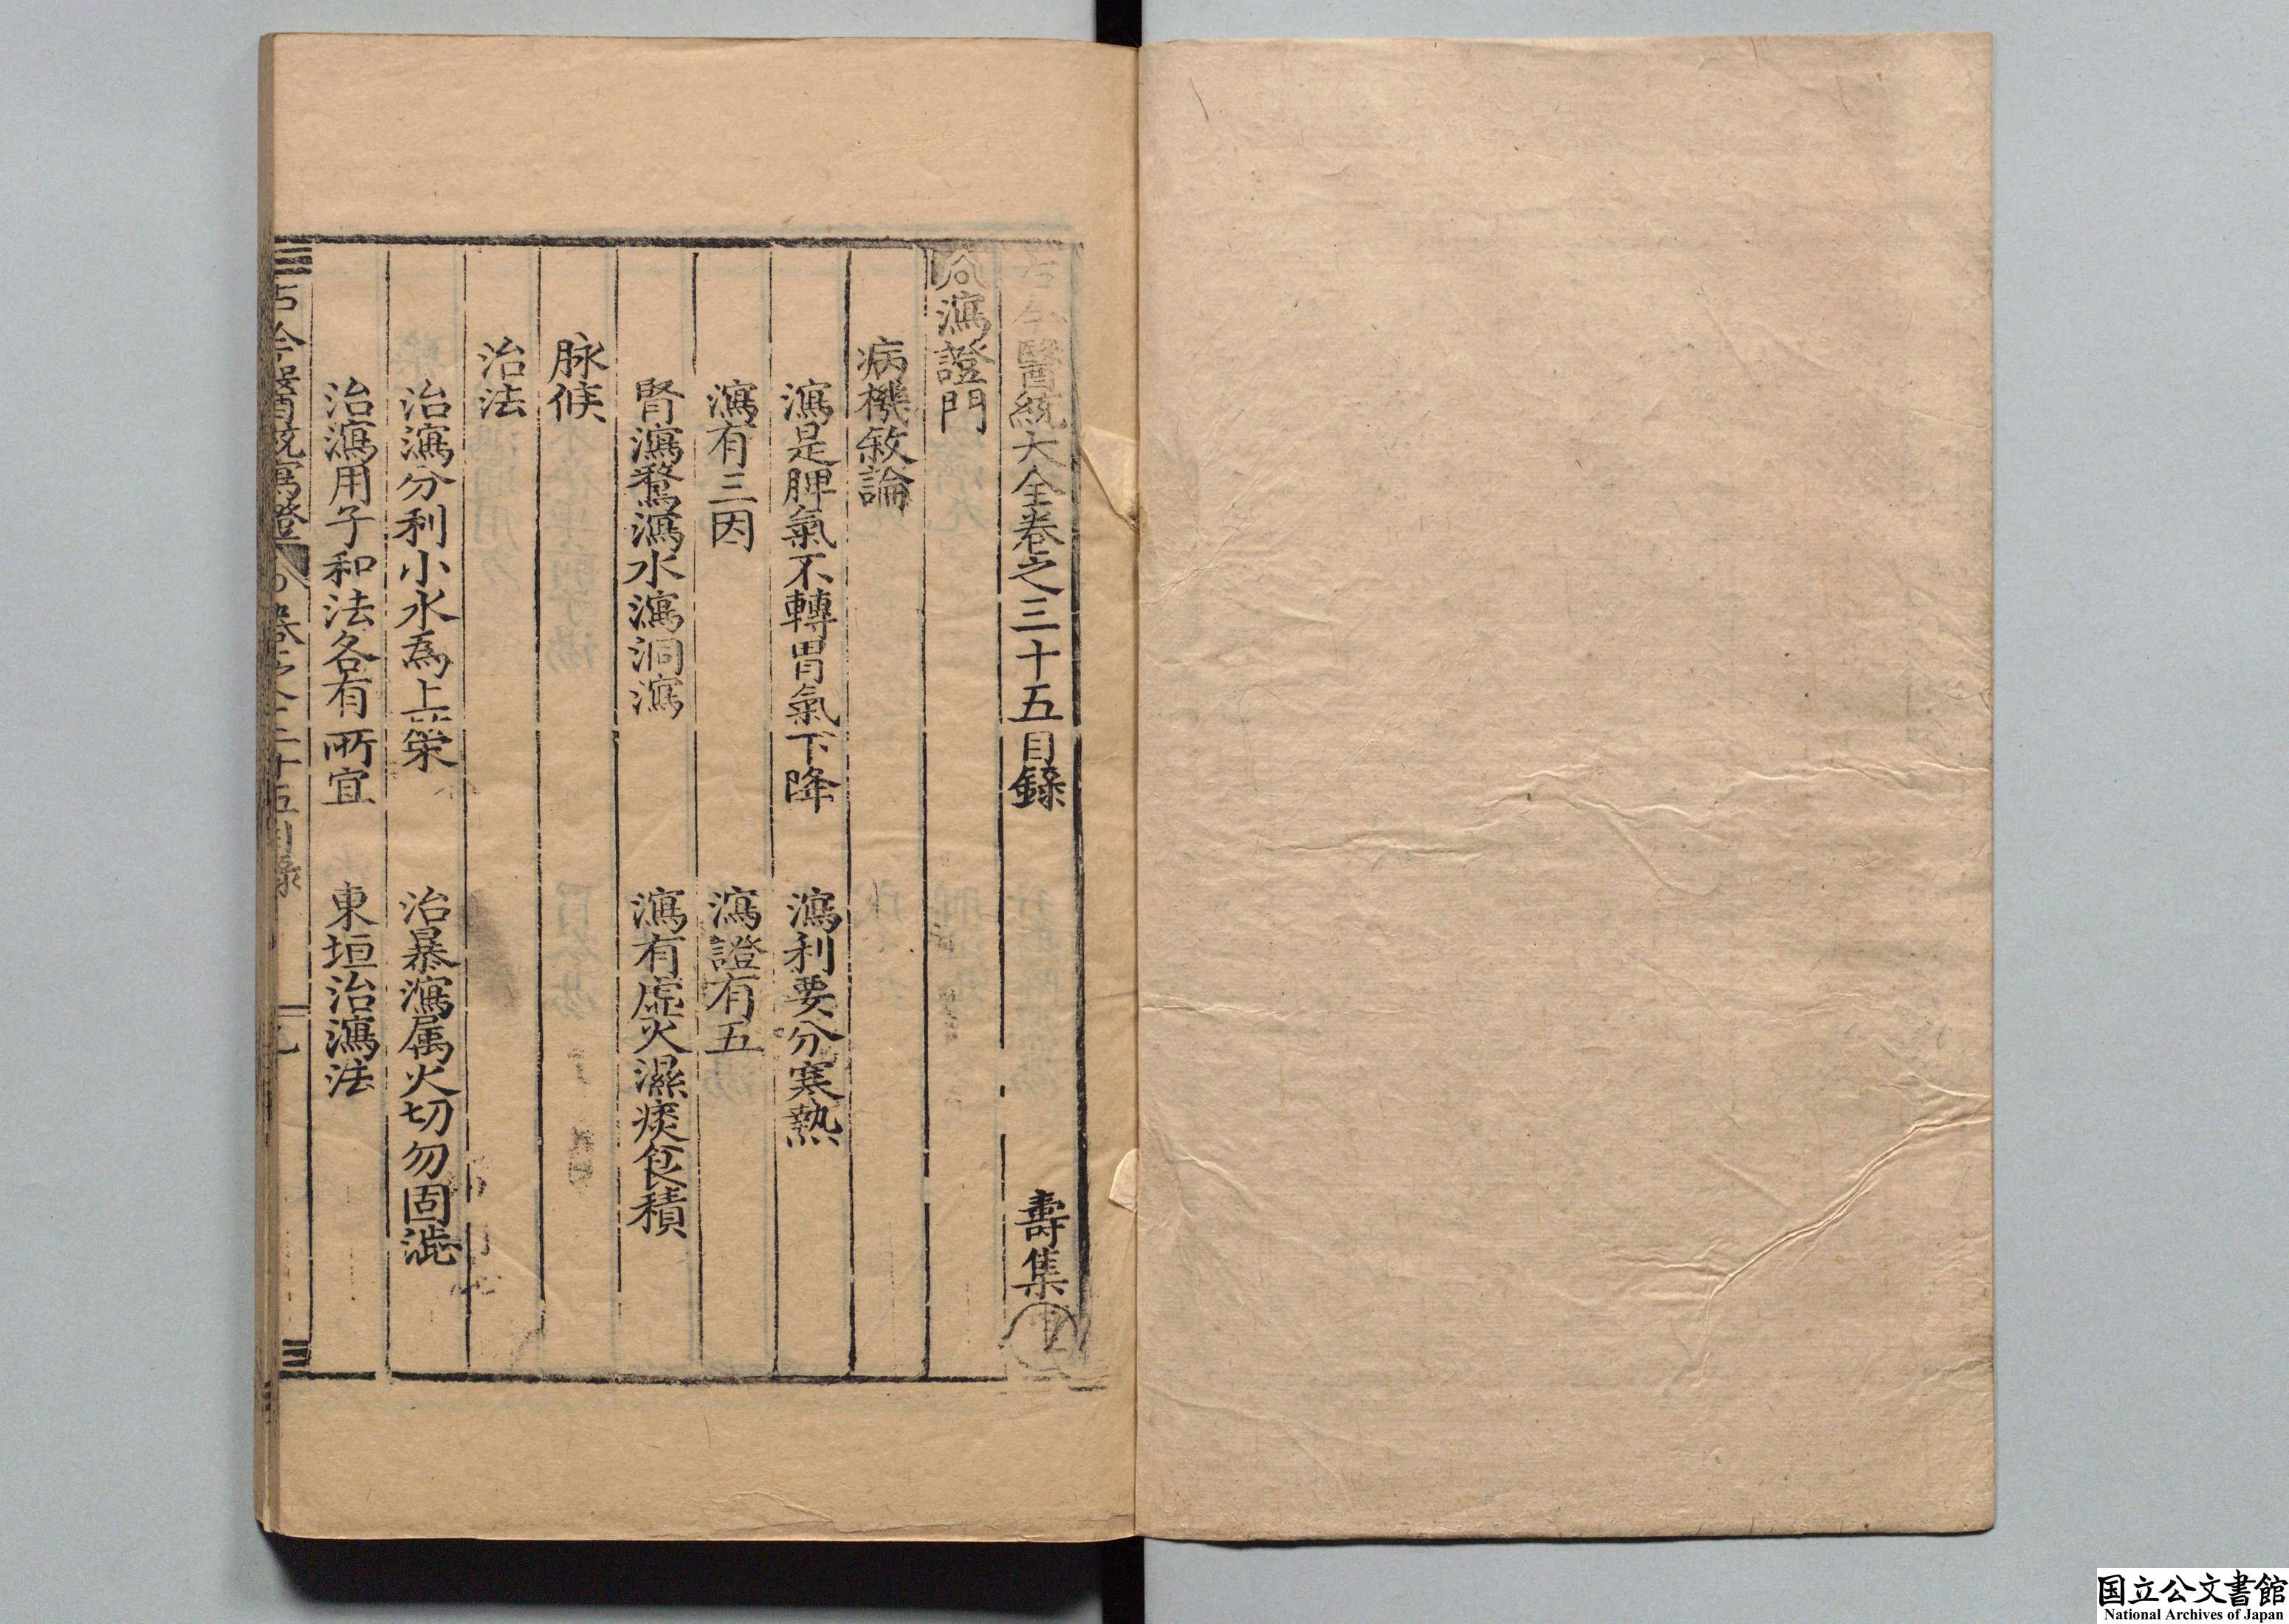 古今醫統大全卷之三十五目錄 壽集
瀉證門
病機敘論
瀉是脾氣不轉胃氣下降 瀉利要分寒熱
瀉有三因 瀉證有五
腎瀉鶩瀉水瀉洞瀉 瀉有虛火濕痰食積
脉候
治法
治瀉分利小水為上策 治暴瀉属火切勿固澁
治瀉用子和法各有所宜 東垣治瀉法
古今醫統 瀉證 卷之三十五目錄
国立公文書館
National Archives of Japan